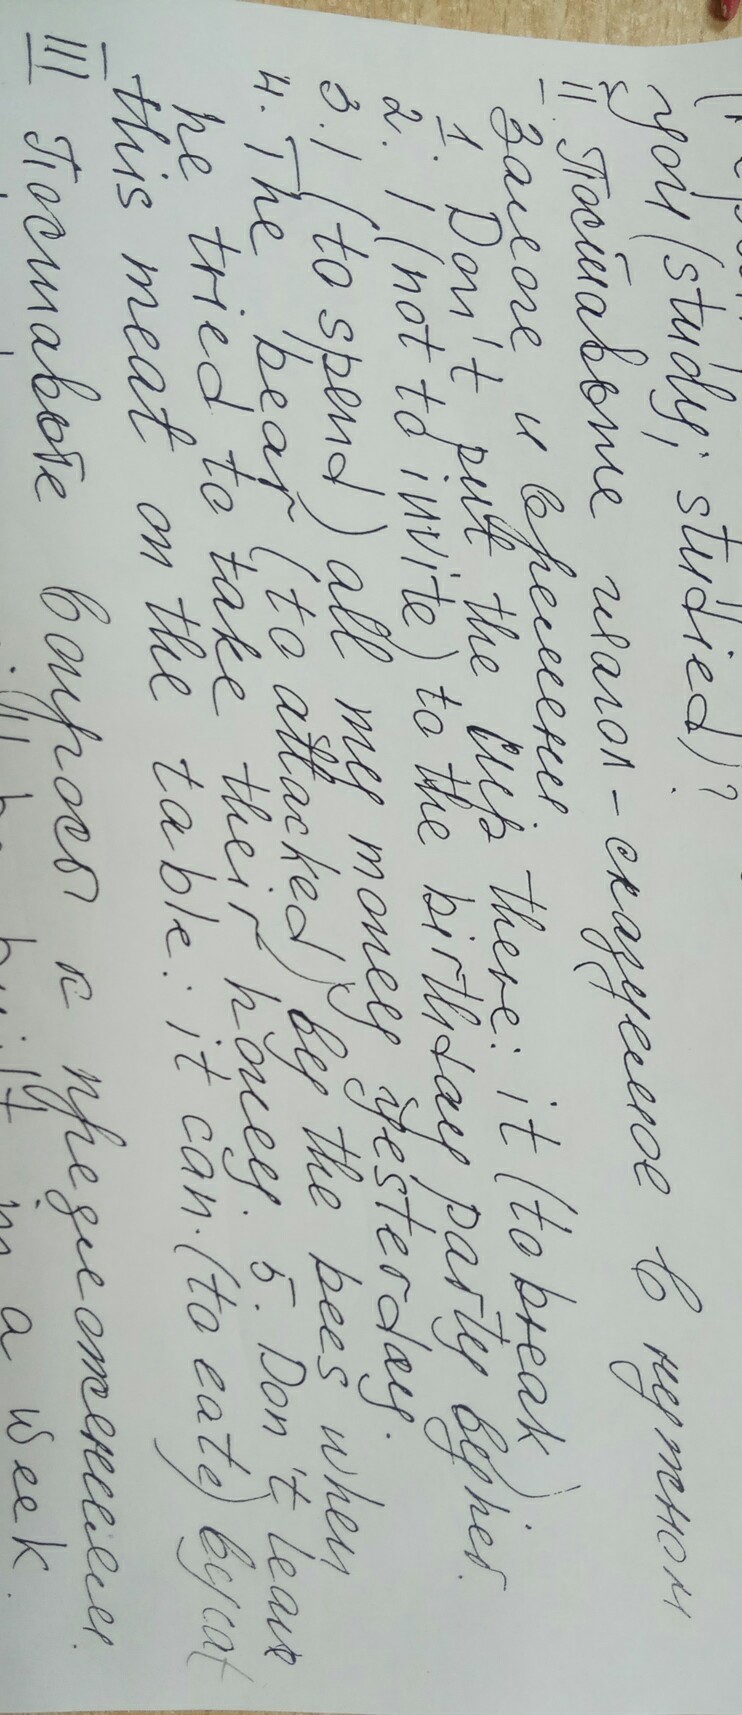 you (study; studied)?
II. Поставьте глагол - сказуемое в нужном
залоге и времени
1. Don't put the cup there: it (to break)
2. I (not to invite) to the birthday party by her.
3. I (to spend) all my money yesterday.
4. The bear (to attacked) by the bees when
he tried to take their honey. 5. Don't leave
this meat on the table: it can (to eate) by cat
III Поставьте вопросы к предложениям.
built in a week.